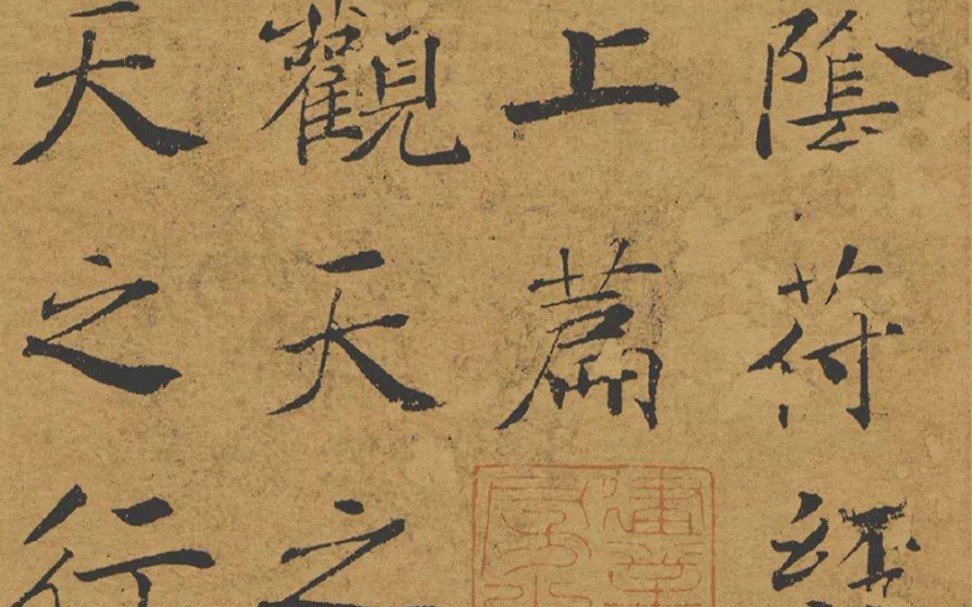 陰苻經
上萹
觀天之
天之行